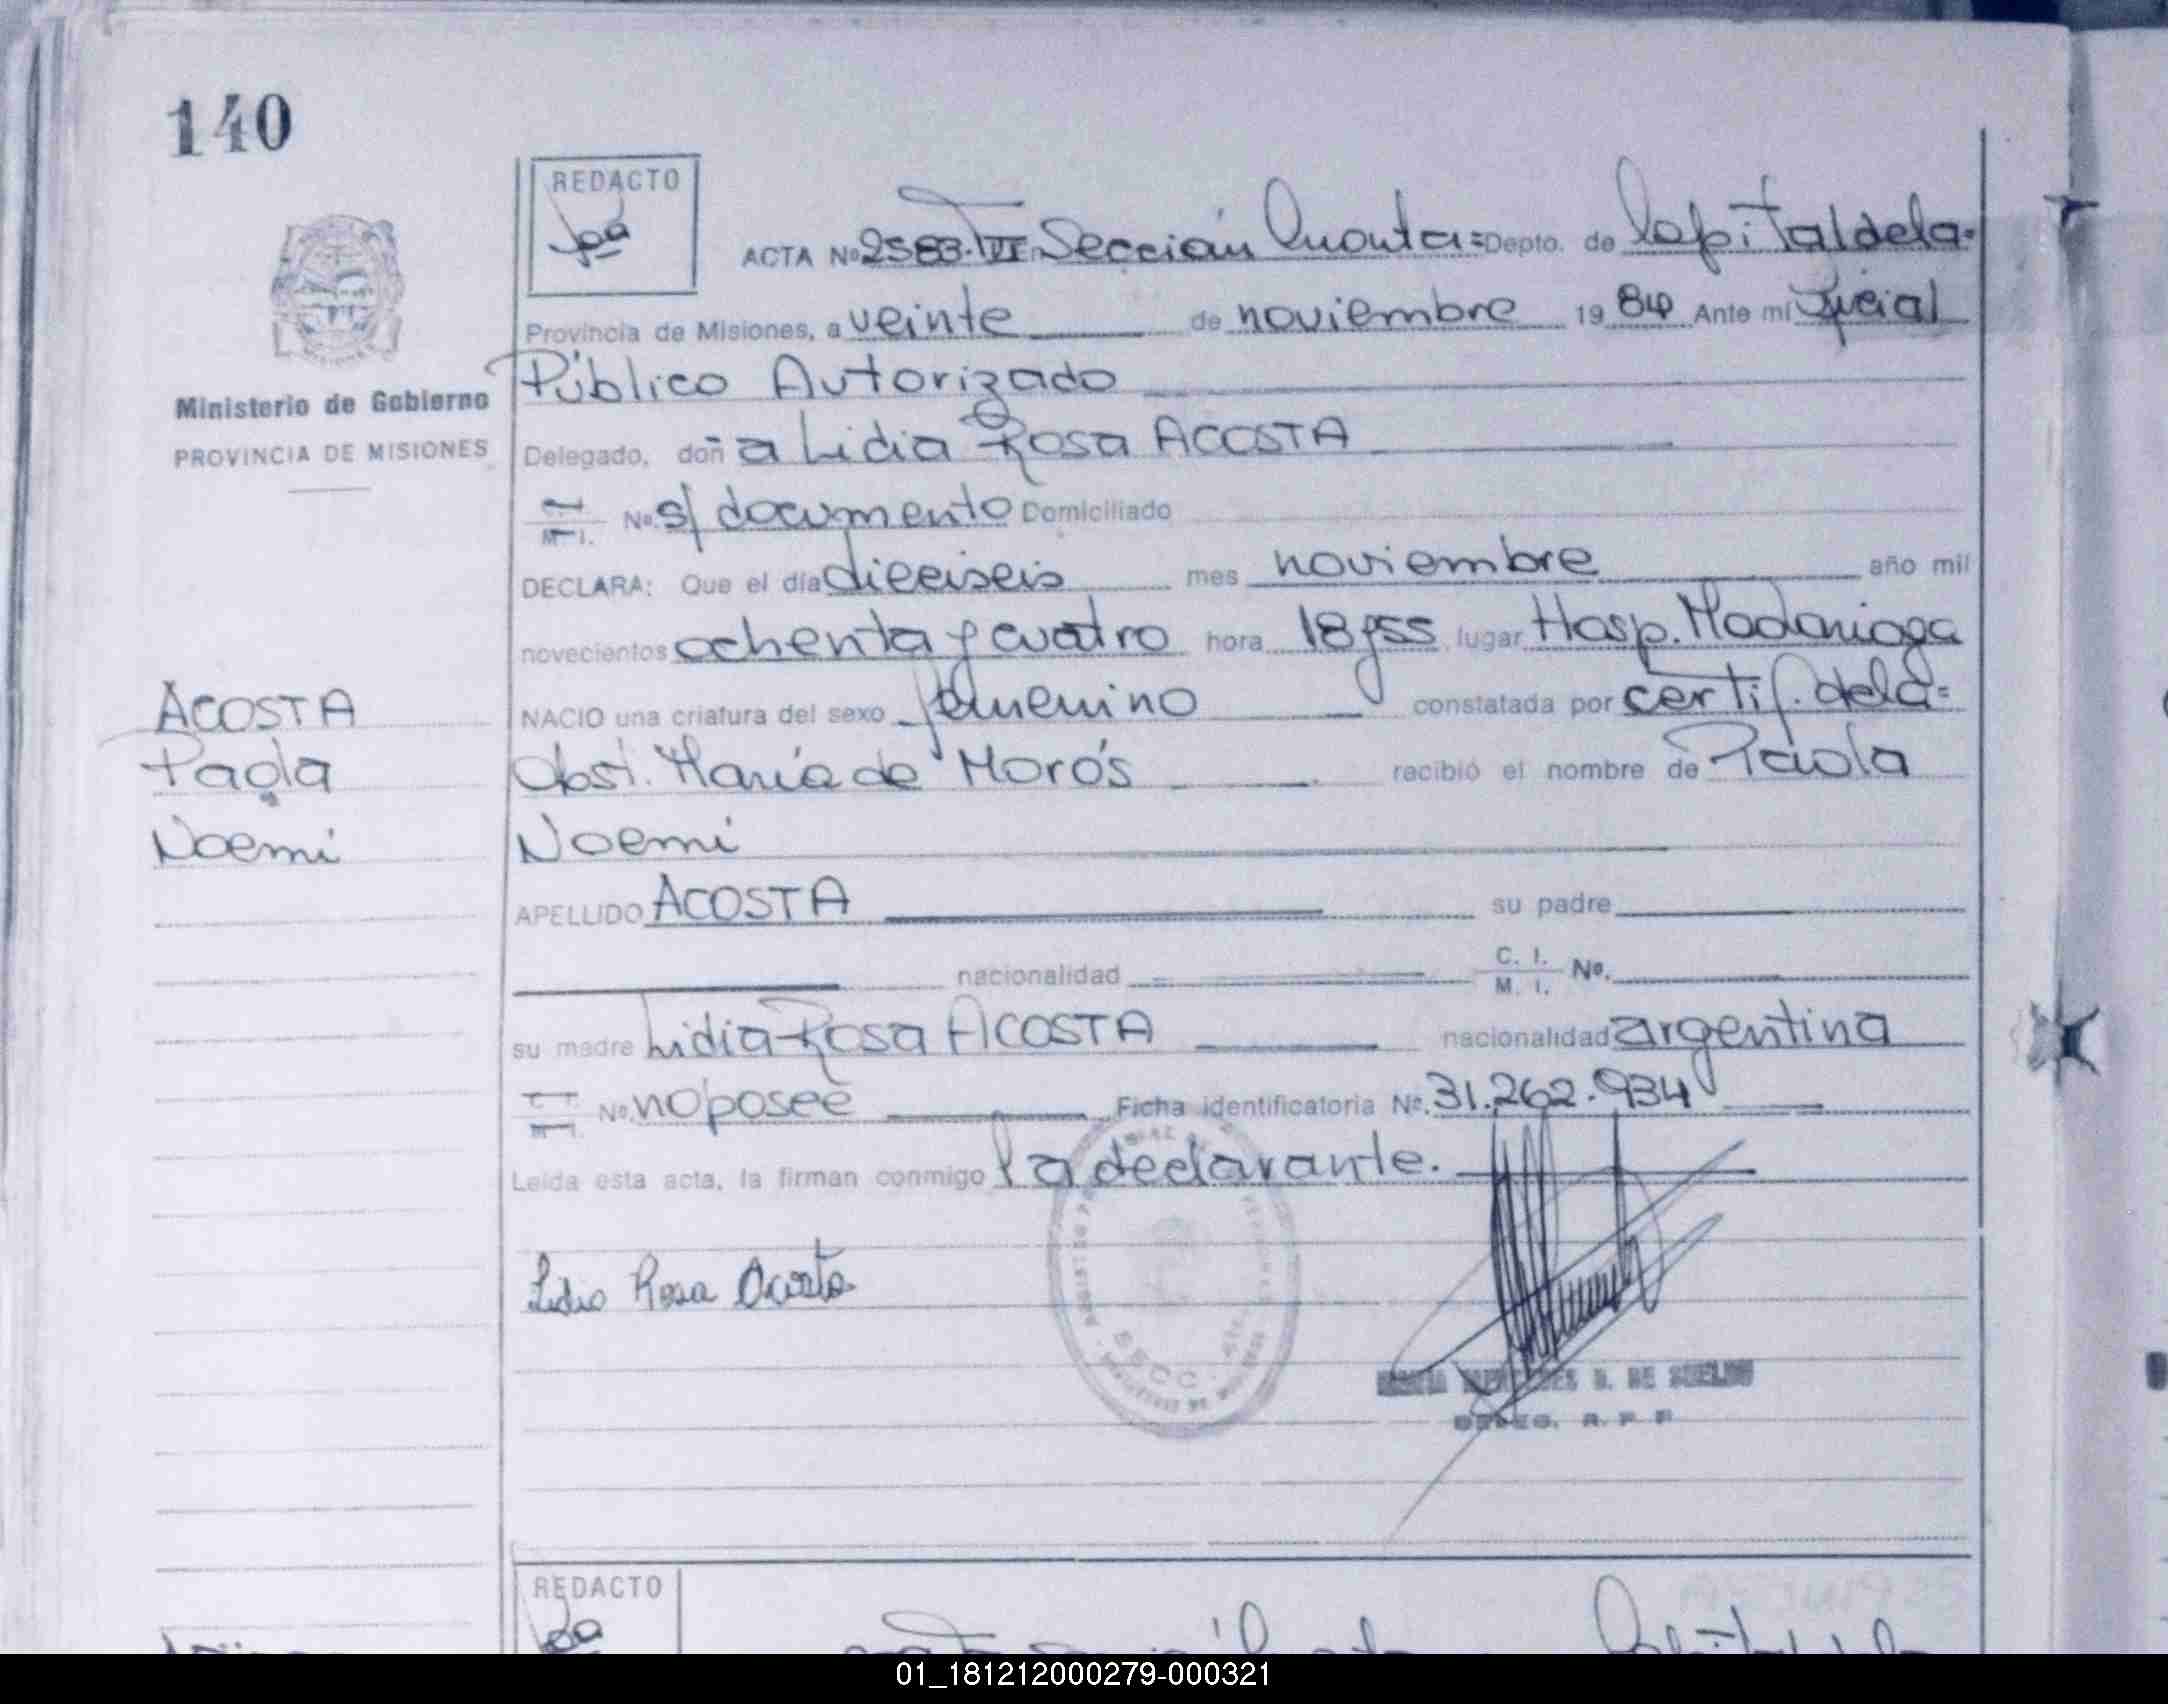 140
REDACTO
ACTA Nº 2583. T VI Sección Cuarta= Depto. de Capital de la=
Provincia de Misiones, a veinte de noviembre 1984 Ante mí Oficial
Público Autorizado
Ministerio de Gobierno
PROVINCIA DE MISIONES
Delegado, doña Lidia Rosa ACOSTA
M. I. Nº s/ documento Domiciliado
DECLARA: Que el día dieciseis mes noviembre año mil
novecientos ochenta y cuatro hora 18 y 55 lugar Hosp. Madariaga
ACOSTA
NACIO una criatura del sexo femenino constatada por certif. de la=
Paola
Obst. María de Morós recibió el nombre de Paola
Noemi
Noemi
APELLIDO ACOSTA su padre
nacionalidad C. I. M. I. Nº.
su madre Lidia Rosa ACOSTA nacionalidad argentina
Nº. no posee Ficha identificatoria Nº. 31.262.934
Leída esta acta, la firman conmigo la declarante.
Lidia Rosa Acosta
SECC. 4ta.
DE SUELDO
DELEG. R. P. P
REDACTO
01_181212000279-000321